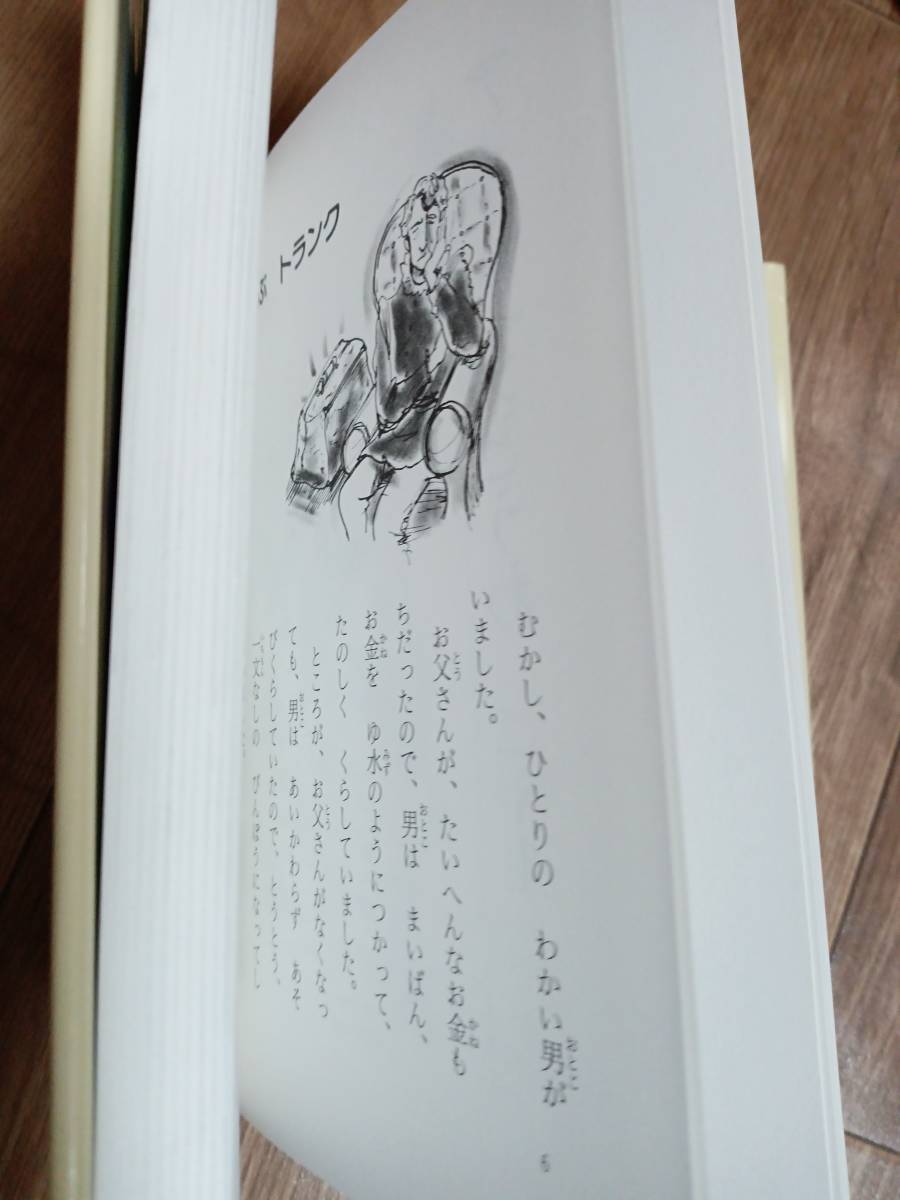 ぶ トランク
むかし、ひとりの わかい男が
いました。
お父さんが、たいへんなお金も
ちだったので、男は まいばん、
お金を ゆ水のようにつかって、
たのしく くらしていました。
ところが、お父さんがなくなっ
ても、男は あいかわらず あそ
びくらしていたので、とうとう、
一文なしの びんぼうになってし
6